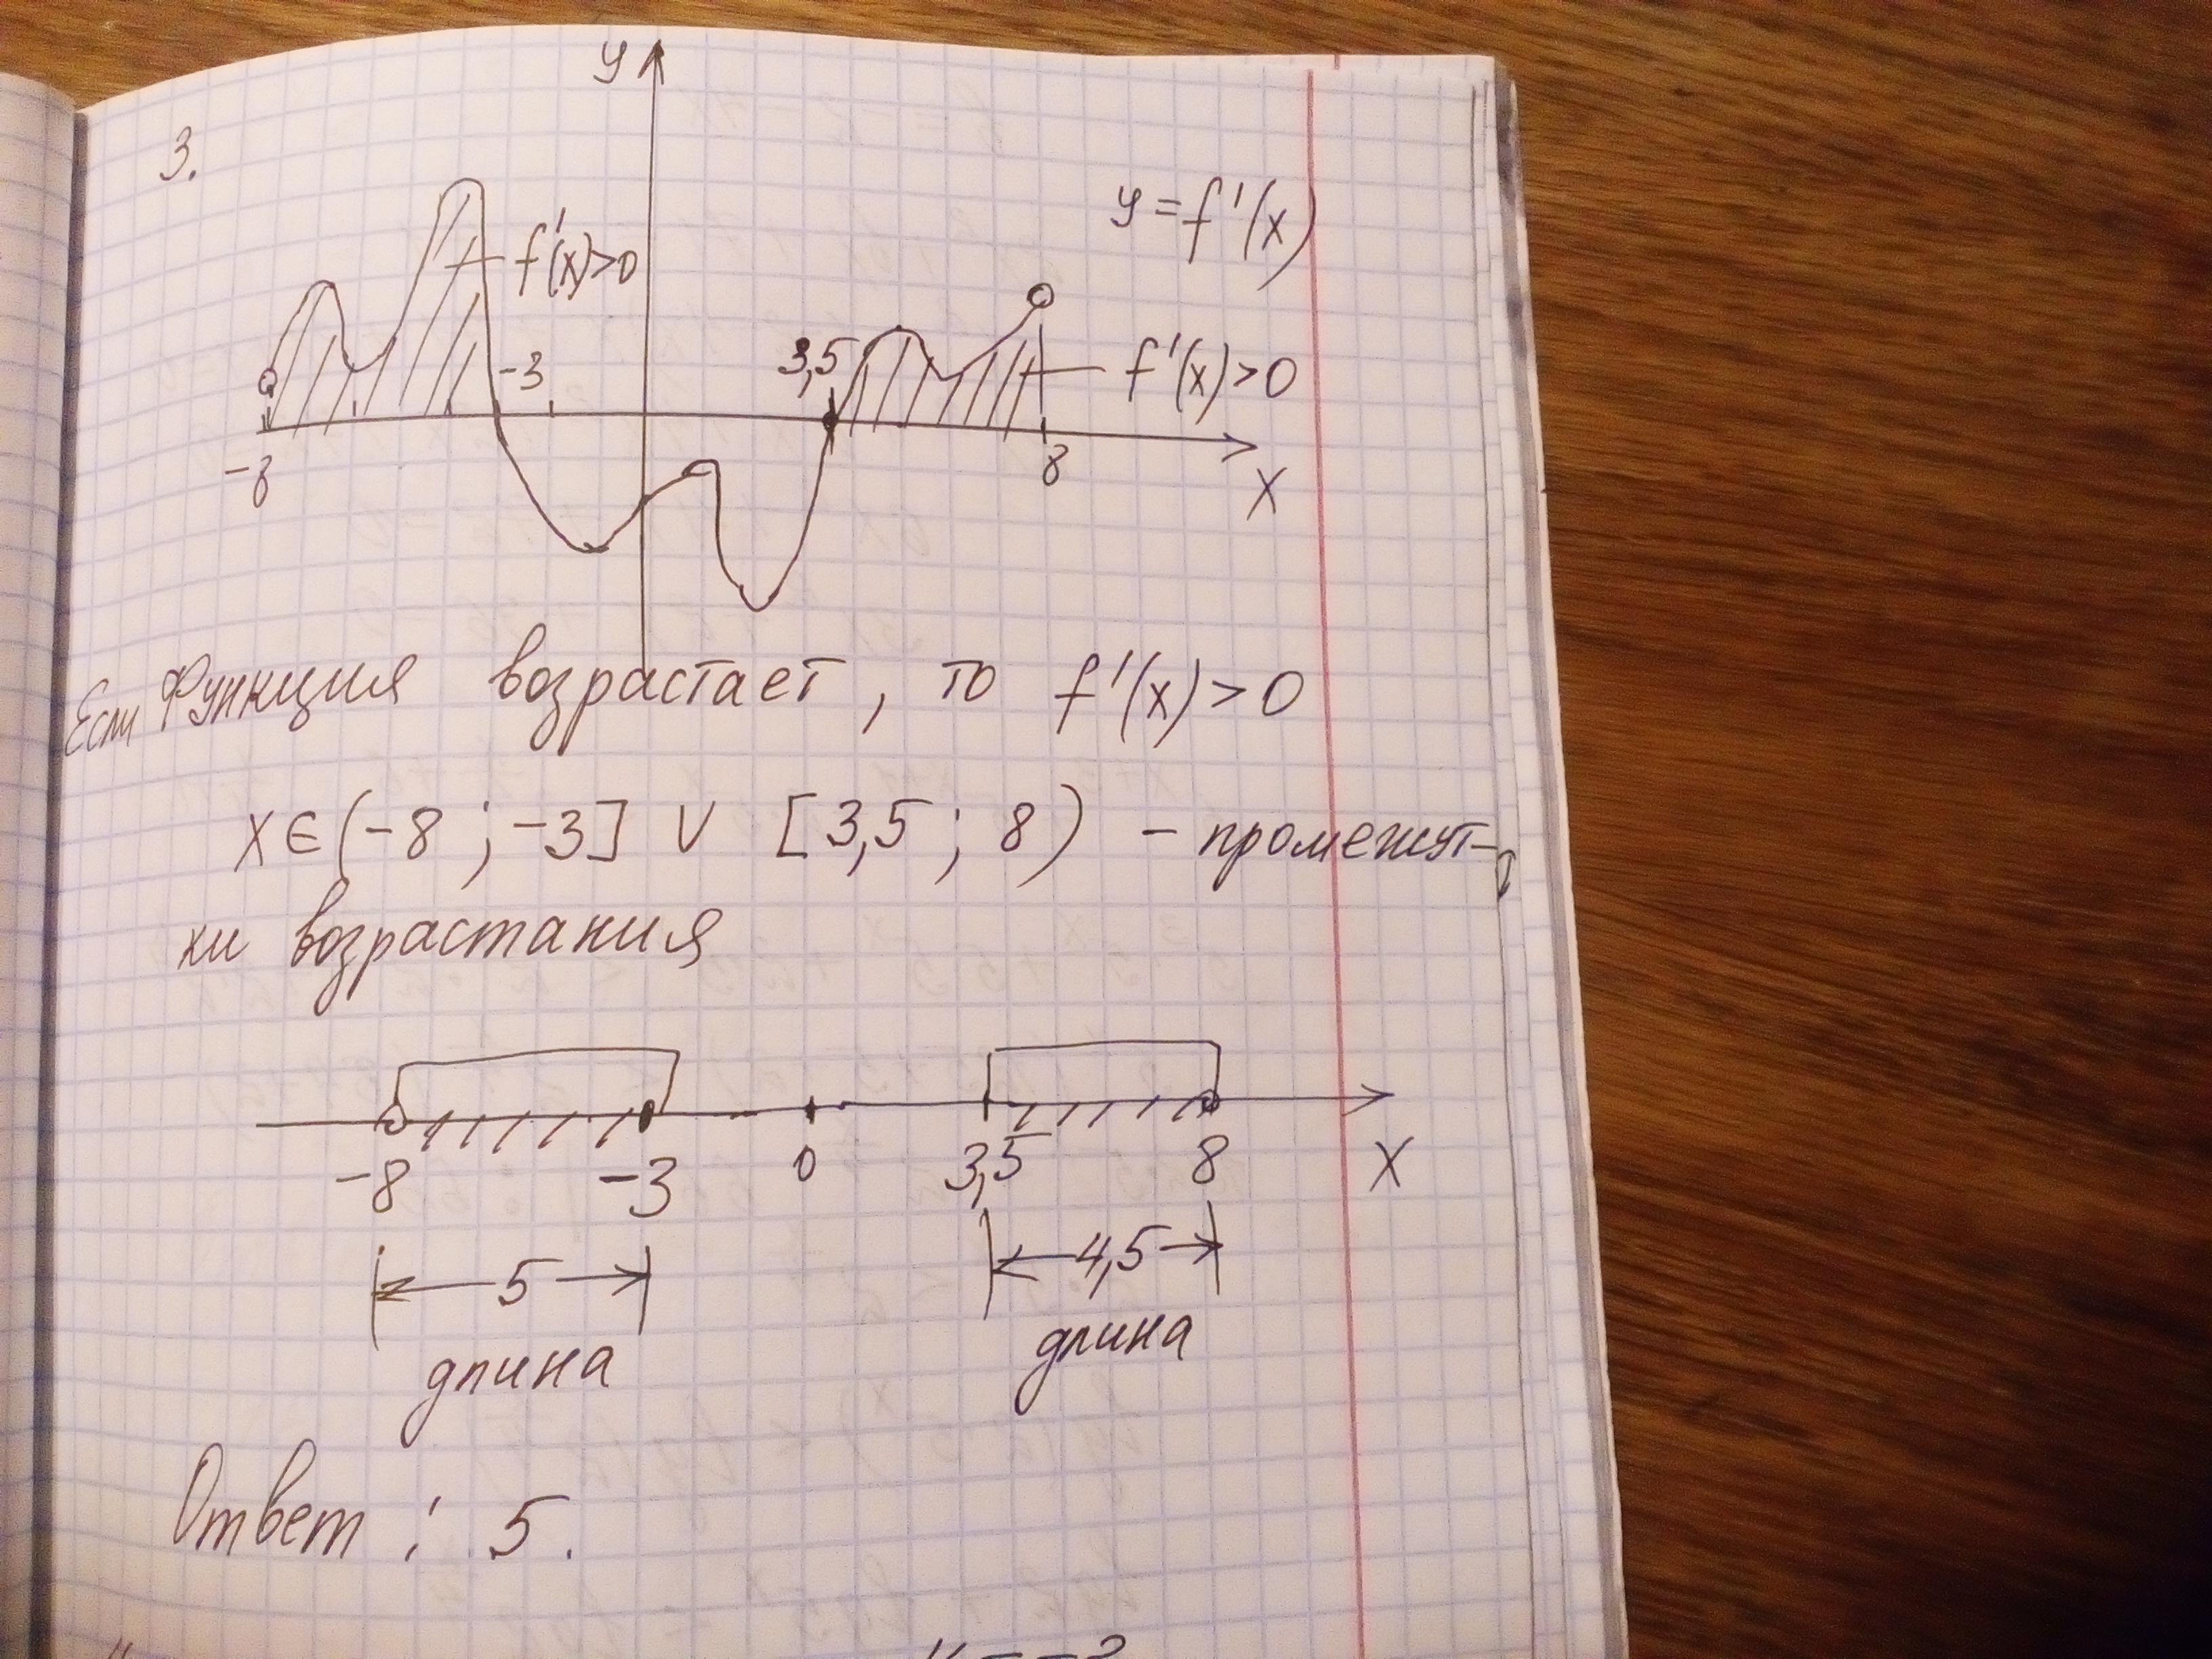 y
3.
y = f'(x)
f'(x)>0
-3
3,5
f'(x)>0
-8
8
x
Если функция возрастает, то f'(x)>0
x∈(-8; -3] ∪ [3,5; 8) - промежут-
ки возрастания
-8 -3 0 3,5 8 x
5 4,5
длина длина
Ответ: 5.